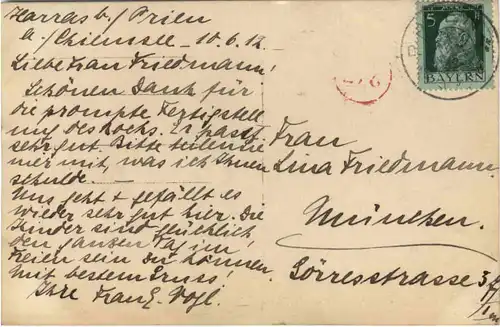 Harras b/ Prien
a./Chiemsee 10.6.12.
Liebe Frau Friedmann!
Schönen Dank für
die prompte Fertigstel
lung des Rocks. Er passt
sehr gut. Bitte teilen Sie
mir mit, was ich Ihnen
schulde. —
Uns geht & gefällt es
wieder sehr gut hier. Die
Kinder sind glücklich
den ganzen Tag im
Freien sein zu können.
Mit bestem Gruss!
Ihre Frau E. Vogl.
5
BAYERN
Frau
Lina Friedmann.
München.
Görresstrasse 3